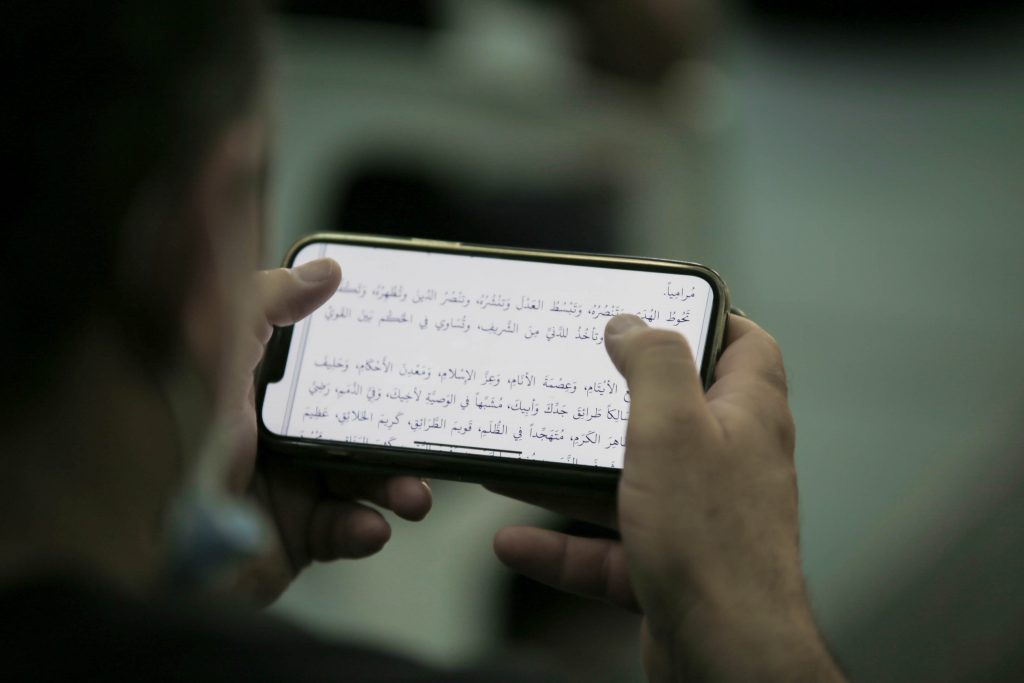 مُرامِياً.
تَحُوطُ الهُدَى وَتَنْصُرُهُ، وَتَبْسُطُ العَدْلَ وَتَنْشُرُهُ، وتَنْصُرُ الدِّينَ وتُظْهِرُهُ، وَتَكُفُّ
وتَأخُذُ للدَّنِيِّ مِنَ الشَّريفِ، وتُسَاوِي فِي الحُكْمِ بَيْنَ القَوِيِّ
الأيْتَامِ، وَعِصْمَةَ الأنَامِ، وَعِزَّ الإسْلامِ، وَمَعْدِنَ الأَحْكَامِ، وَحَلِيفَ
سَالِكاً طَرائِقَ جَدِّكَ وَأبِيكَ، مُشَبَّهاً في الوَصِيَّةِ لأخِيكَ، وَفِيَّ الذِّمَمِ، رَضِيَّ
ظَاهِرَ الكَرَمِ، مُتَهَجِّداً فِي الظُّلَمِ، قَوِيمَ الطَّرَائِقِ، كَرِيمَ الخَلائِقِ، عَظِيمَ